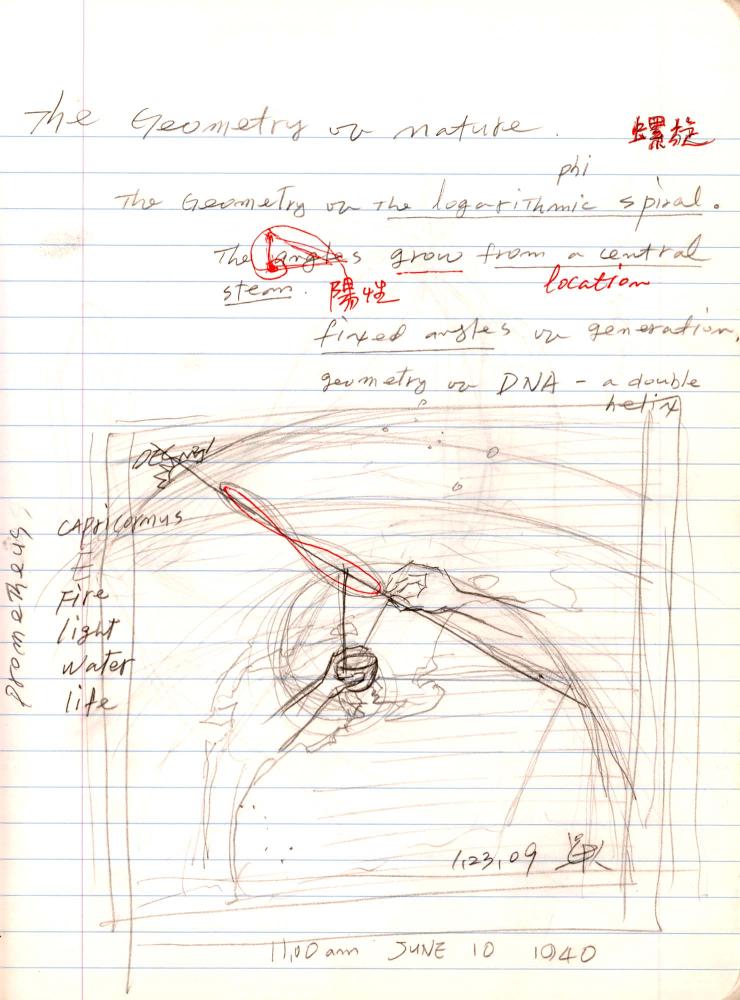 The Geometry on nature.
螺旋
phi
The Geometry on the logarithmic spiral.
The angles grow from a central
steam.
陽性
location
fixed angles on generation,
geometry on DNA - a double
helix
CAPricornus
Fire
light
water
life
Prometheus
1,23,09
11,00 am JUNE 10 1940